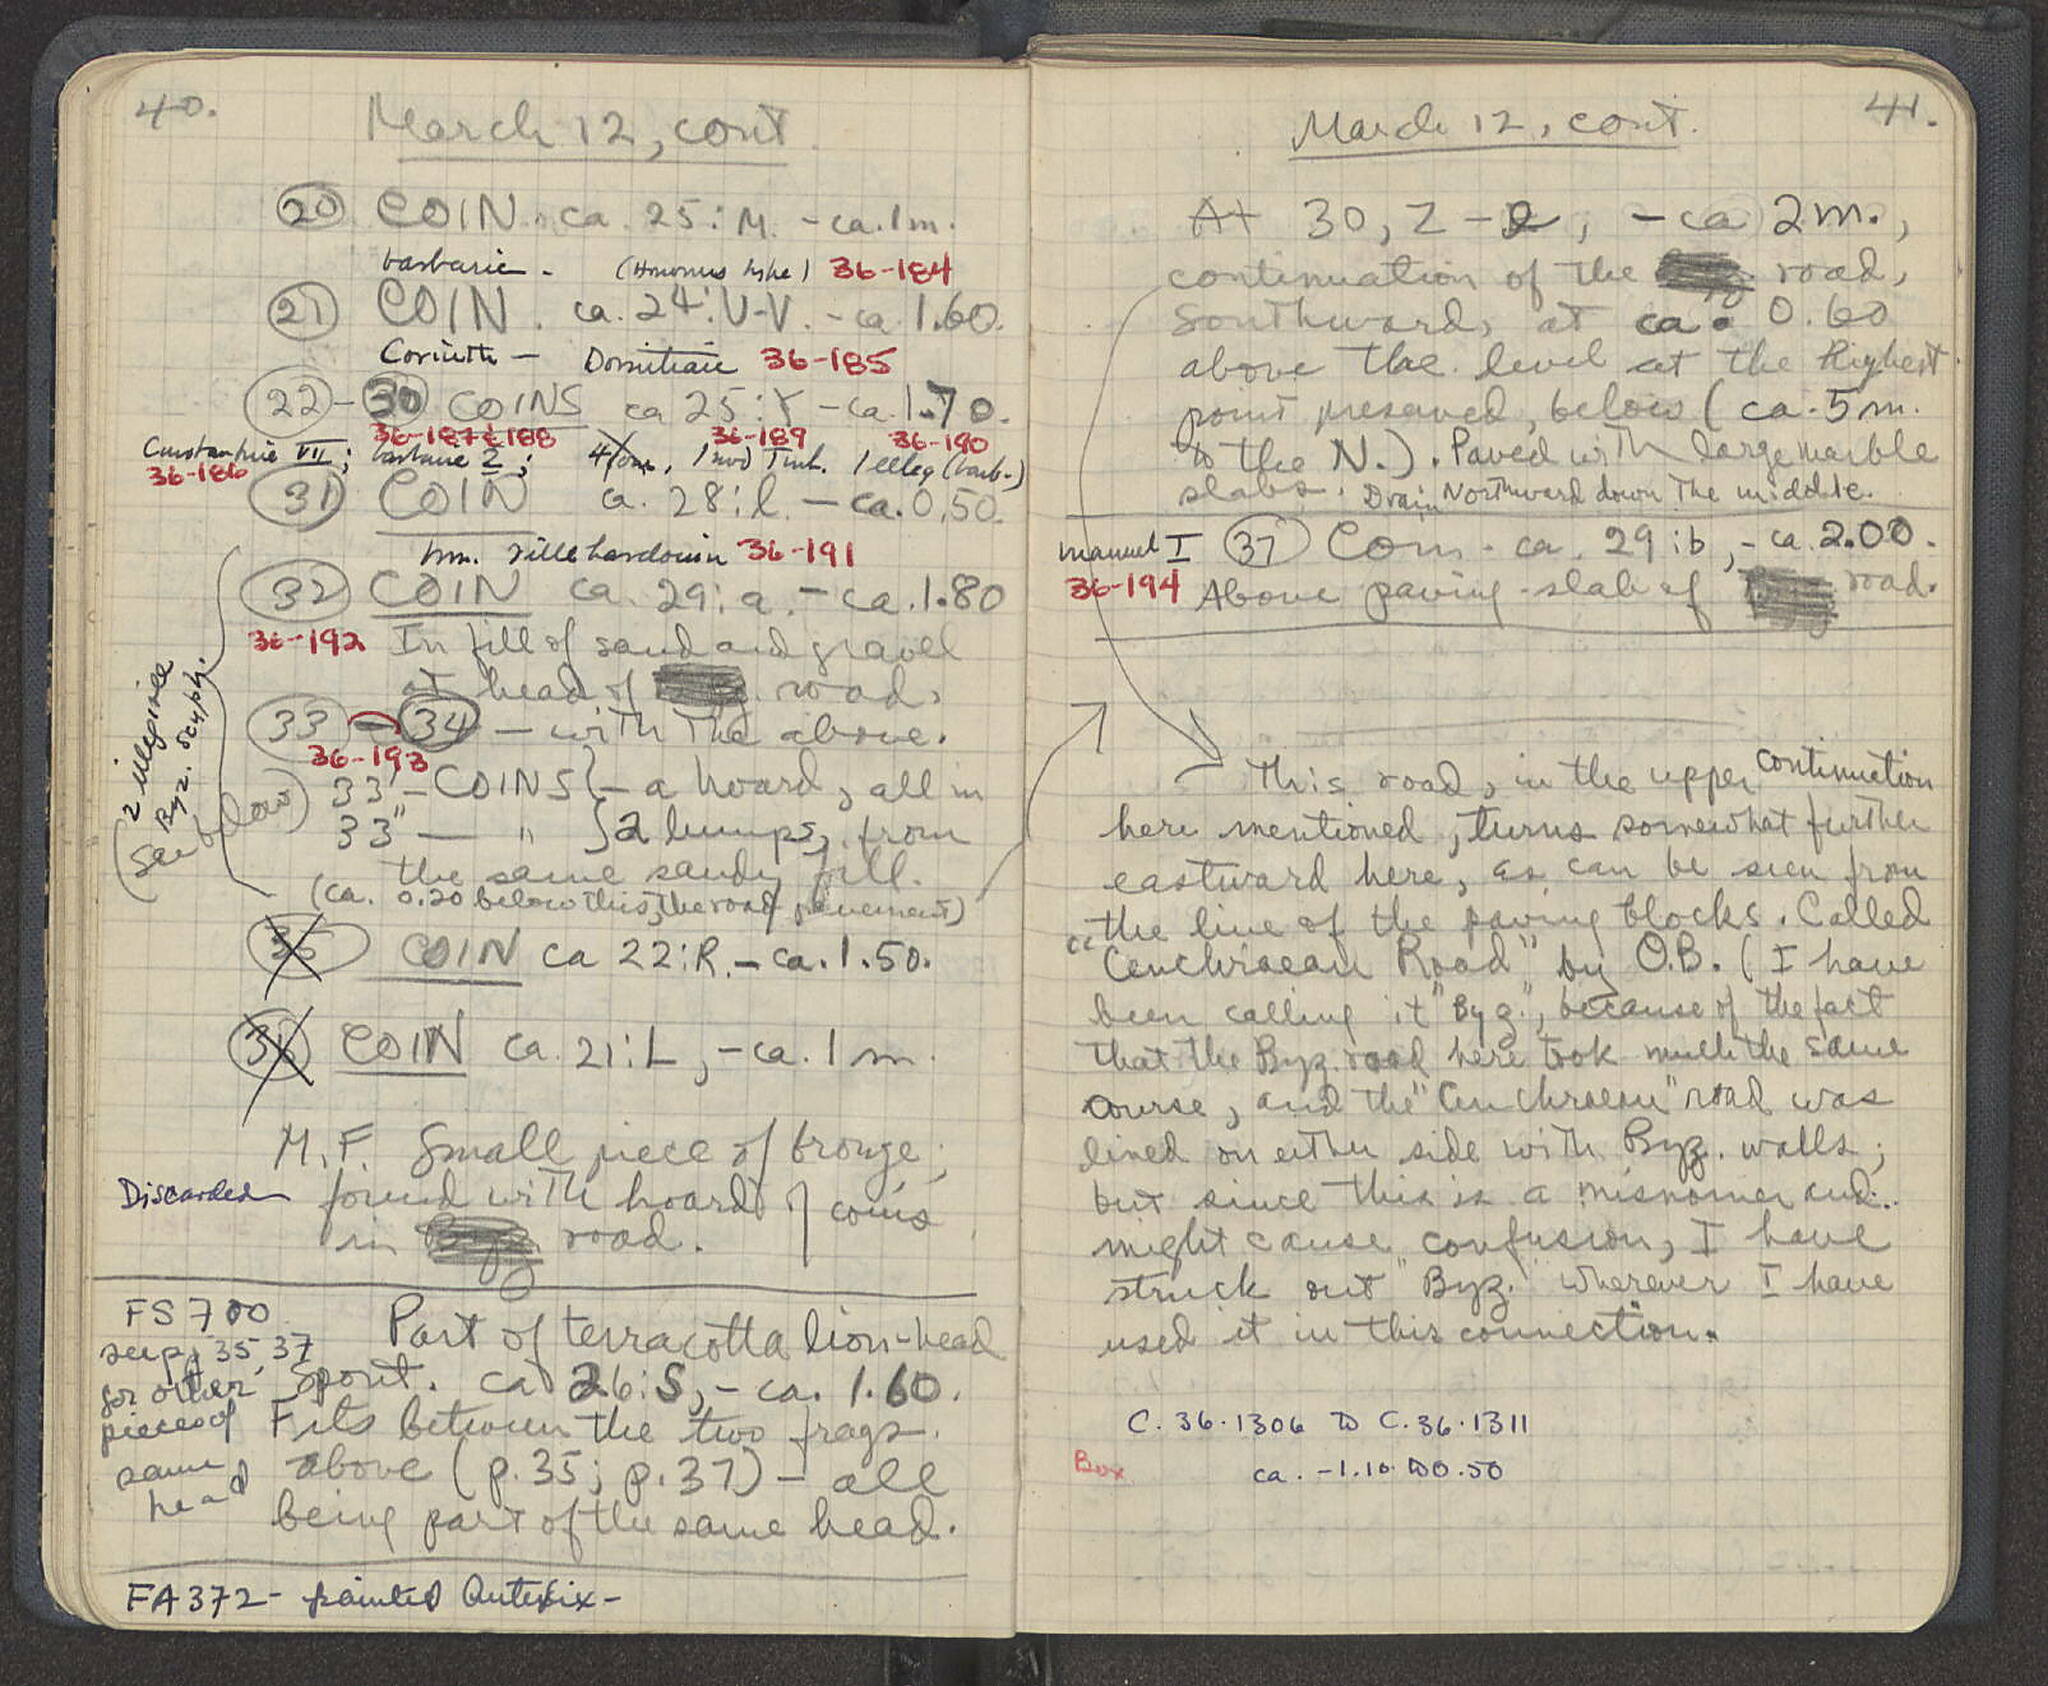 40.
March 12, cont.
20 COIN. ca. 25:M. - ca. 1 m.
barbaric - (Homonus type) 36-184
21 COIN. ca. 24:U-V. - ca. 1.60.
Corinth - Domitian 36-185
22-30 COINS ca 25:Y - ca. 1.70.
36-187 & 188 36-189 36-190
Constantine VII; barbaric 2; 4 , 1 mod Turk. 1 illeg (barb-)
36-186
31 COIN ca. 28:l. - ca. 0.50.
Wm. Villehardouin 36-191
32 COIN ca. 29:a. - ca. 1.80
36-192 In fill of sand and gravel
at head of road.
33-34 - with the above.
36-193
33' - COINS } - a hoard, all in
33" - " } 2 lumps, from
the same sandy fill.
(ca. 0.20 below this, the road pavement)
(2 illegible
Byz. scyph.
See below)
35 COIN ca 22:R. - ca. 1.50.
36 COIN ca. 21:L, - ca. 1 m.
M.F. Small piece of bronze;
Discarded found with hoard of coins
in Byz. road.
FS 700
see p. 35, 37
for other
pieces of
same
head
Part of terracotta lion-head
spout. ca 26:S, - ca. 1.60.
Fits between the two frags.
above (p. 35; p. 37) - all
being part of the same head.
FA 372 - painted Antefix -
41.
March 12, cont.
At 30, Z - , - ca 2 m.,
continuation of the road,
Southward, at ca. 0.60
above the level at the highest
point preserved, below (ca. 5 m.
to the N.). Paved with large marble
slabs. Drain Northward down the middle.
Manuel I 37 Coin - ca. 29:b, - ca. 2.00.
36-194 Above paving-slab of road.
This road, in the upper continuation
here mentioned, turns somewhat further
eastward here, as can be seen from
the line of the paving blocks. Called
"Cenchraean Road" by O.B. (I have
been calling it "Byz.", because of the fact
that the Byz. road here took much the same
course, and the "Cenchraean" road was
lined on either side with Byz. walls;
but since this is a misnomer and
might cause confusion, I have
struck out "Byz." wherever I have
used it in this connection.
C. 36.1306 to C. 36.1311
Box ca. -1.10 to 0.50